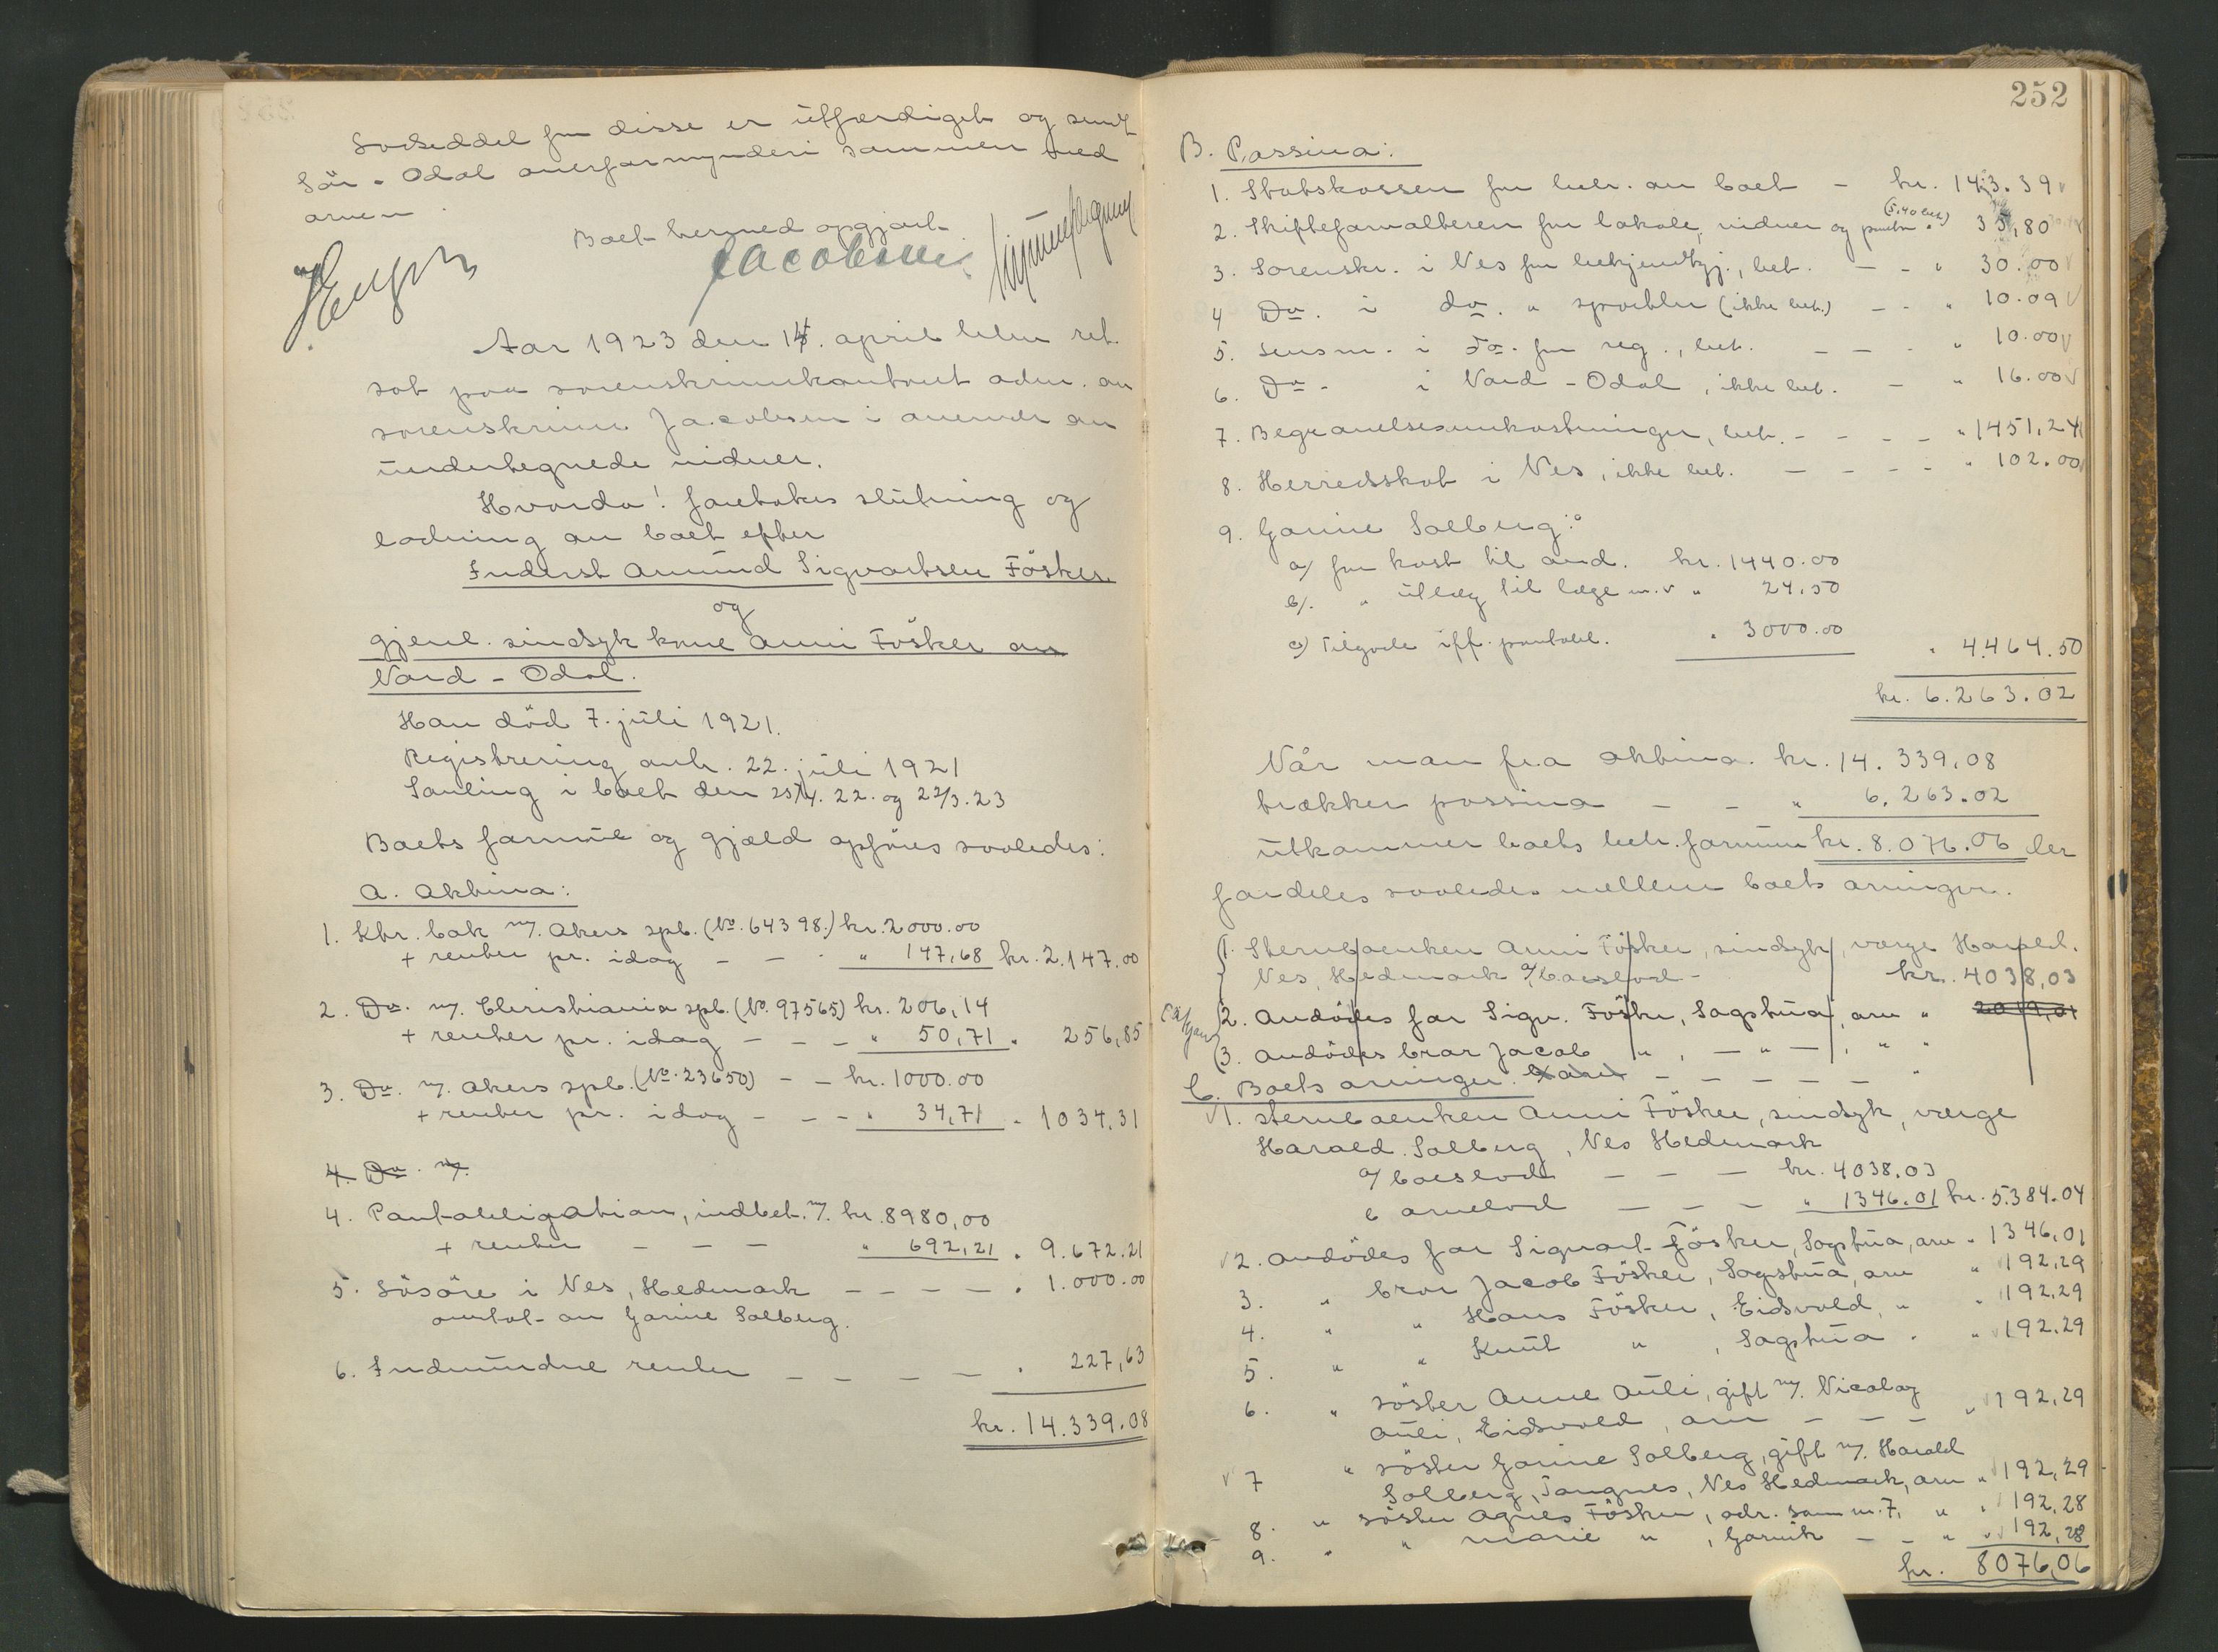 Lodseddel for disse er utfærdiget og sendt
Sör-Odal overformynderi sammen med
arven.
Boet hermed opgjort.
Jacobsen
Aar 1923 den 14. april blev ret
sat paa sorenskriverkontoret adm. av
sorenskriver Jacobsen i overvær av
undertegnede vidner.
Hvorda! foretokes slutning og
lodning av boet efter
Inderst Amund Sigvartsen Fösker
og
gjenl. sindsyk kone Anni Fösker av
Nord-Odal.
Han död 7. juli 1921.
Registrering avh. 22. juli 1921
Samling i boet den 25/4. 22. og 22/3. 23
Boets formue og gjæld opföres saaledes:
A. Aktiva:
1. Kbr. bok m/. Akers spb. (No. 64398.) kr. 2000.00
+ renter pr. idag - - - " 147,68 kr. 2.147.00
2. Do. m/. Christiania spb. (No. 97565) kr. 206,14
+ renter pr. idag - - - " 50,71 " 256,85
3. Do. m/. Akers spb. (No. 23650) - - kr. 1000.00
+ renter pr. idag - - - " 34,71 " 1034,31
4. Do. m/.
4. Pantobligation, indbet. m/. kr. 8980,00
+ renter - - - " 692,21 " 9.672.21
5. Lösöre i Ves, Hedmark - - - - " 1.000.00
overtat av Gorine Solberg.
6. Indvundne renter - - - - " 227,63
kr. 14.339.08
252
B. Passiva:
1. Statskassen for beh. av boet - kr. 143.39
(5,40 bet.)
2. Skifteforvalteren for lokale, vidner og porto " 35,80
3. Sorenskr. i Nes for bekjendtgj., bet. - - " 30.00
4 Do. i do. " sportler (ikke bet.) - - " 10.09
5. Lensm. i Do. for reg., bet. - - - " 10.00
6. Do - i Nord-Odal, ikke bet. - " 16.00
7. Begravelsesomkostninger, bet. - - - - " 1451,24
8. Herredsskat i Nes, ikke bet. - - - - " 102.00
9. Gorine Solberg:
a/ for kost til avd. kr. 1440.00
b/. " utlæg til læge m.v " 24,50
c) Tilgode iff. pantobl. " 3000.00 " 4.464.50
kr. 6.263.02
Når man fra aktiva kr. 14.339,08
trækker passiva - - " 6.263.02
utkommer boets beh. formue kr. 8.076.06 der
fordeles saaledes mellem boets arvinger.
(1. Sterboenken Anni Fösker, sindsyk, værge Harald.
Nes, Hedmark a/ boeslod - kr. 4038,03
2. Avdödes far Sigv. Fösker, Sagstua, arv " 2019,01
(3. Avdödes bror Jacob " , - " - , " "
C. Boets arvinger. - - - - - "
1. Sterboenken Anni Fösker, sindsyk, værge
Harald Solberg, Nes Hedmark
a/ boeslod - - - kr. 4038.03
b arvelod - - - " 1346.01 kr. 5.384.04
2. Avdödes far Sigvart Fösker, Sagstua, arv " 1346,01
3. " bror Jacob Fösker, Sagstua, arv " 192,29
4. " " Hans Fösker, Eidsvold, " " 192,29
5. " " Knut " , Sagstua " " 192.29
6. " söster Anne Auli, gift m/. Nicolay
Auli, Eidsvold, arv - - - " 192,29
7 " söster Gorine Solberg, gift m/. Harald
Solberg, Tangnes, Nes Hedmark, arv " 192,29
8. " söster Agnes Fösker, adr. som nr. 7, " " 192,28
9. " " Marie " , Gjövik - - " " 192,28
kr. 8076,06